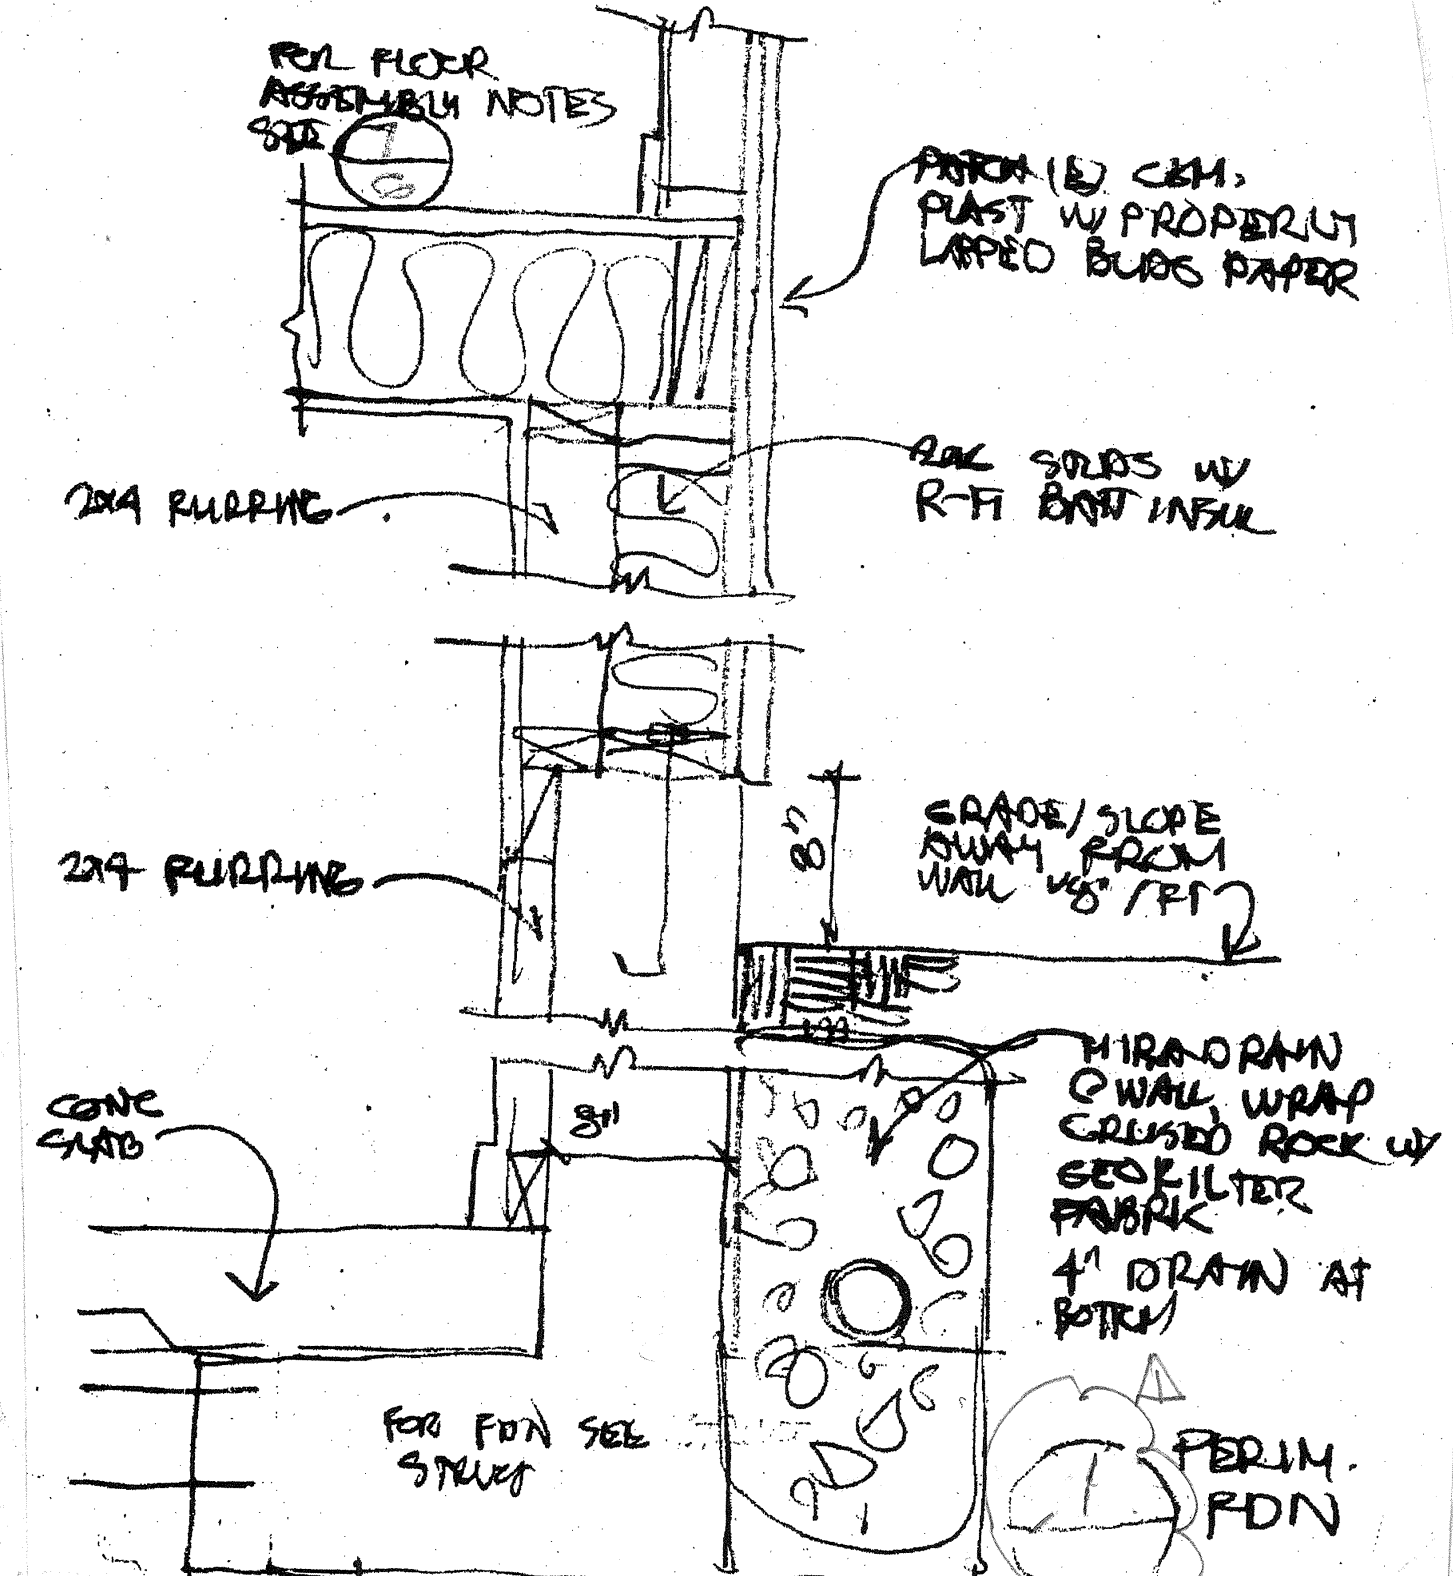 FOR FLOOR
ASSEMBLY NOTES
SEE
7
6
PATCH (E) CEM.
PLAST W/ PROPERLY
LAPPED BLDG PAPER
2X4 FURRING
STUDS W/
BATT INSUL
2X4 FURRING
8"
GRADE/SLOPE
AWAY FROM
WALL 1/8" /FT
CONC
SLAB
8"
MIRADRAIN
@ WALL, WRAP
CRUSED ROCK W/
GEOFILTER
FABRIC
4" DRAIN AT
BOTTOM
FOR FDN SEE
STRUCT
1
1
PERIM.
FDN